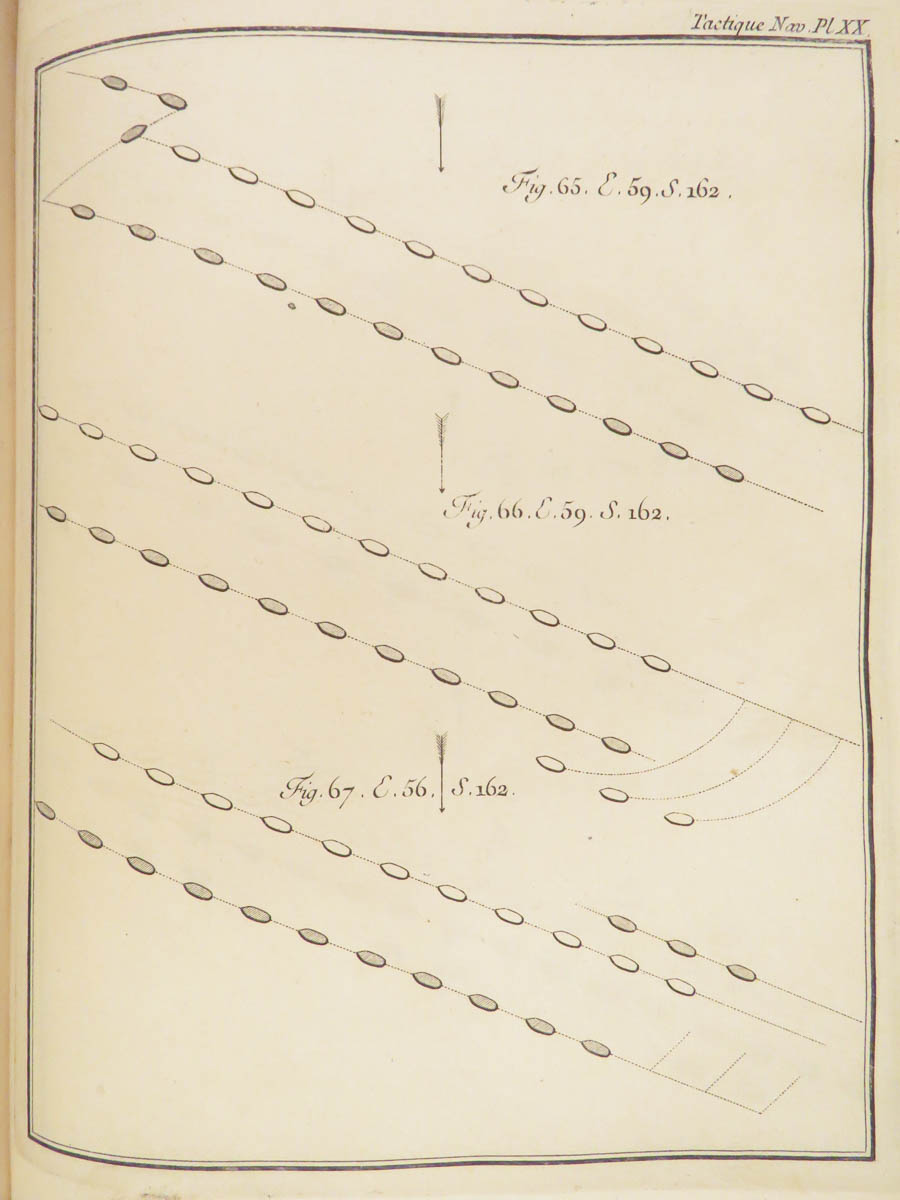 Tactique Nav. Pl XX.
Fig. 65. E. 59. S. 162.
Fig. 66. E. 59. S. 162.
Fig. 67. E. 56. S. 162.